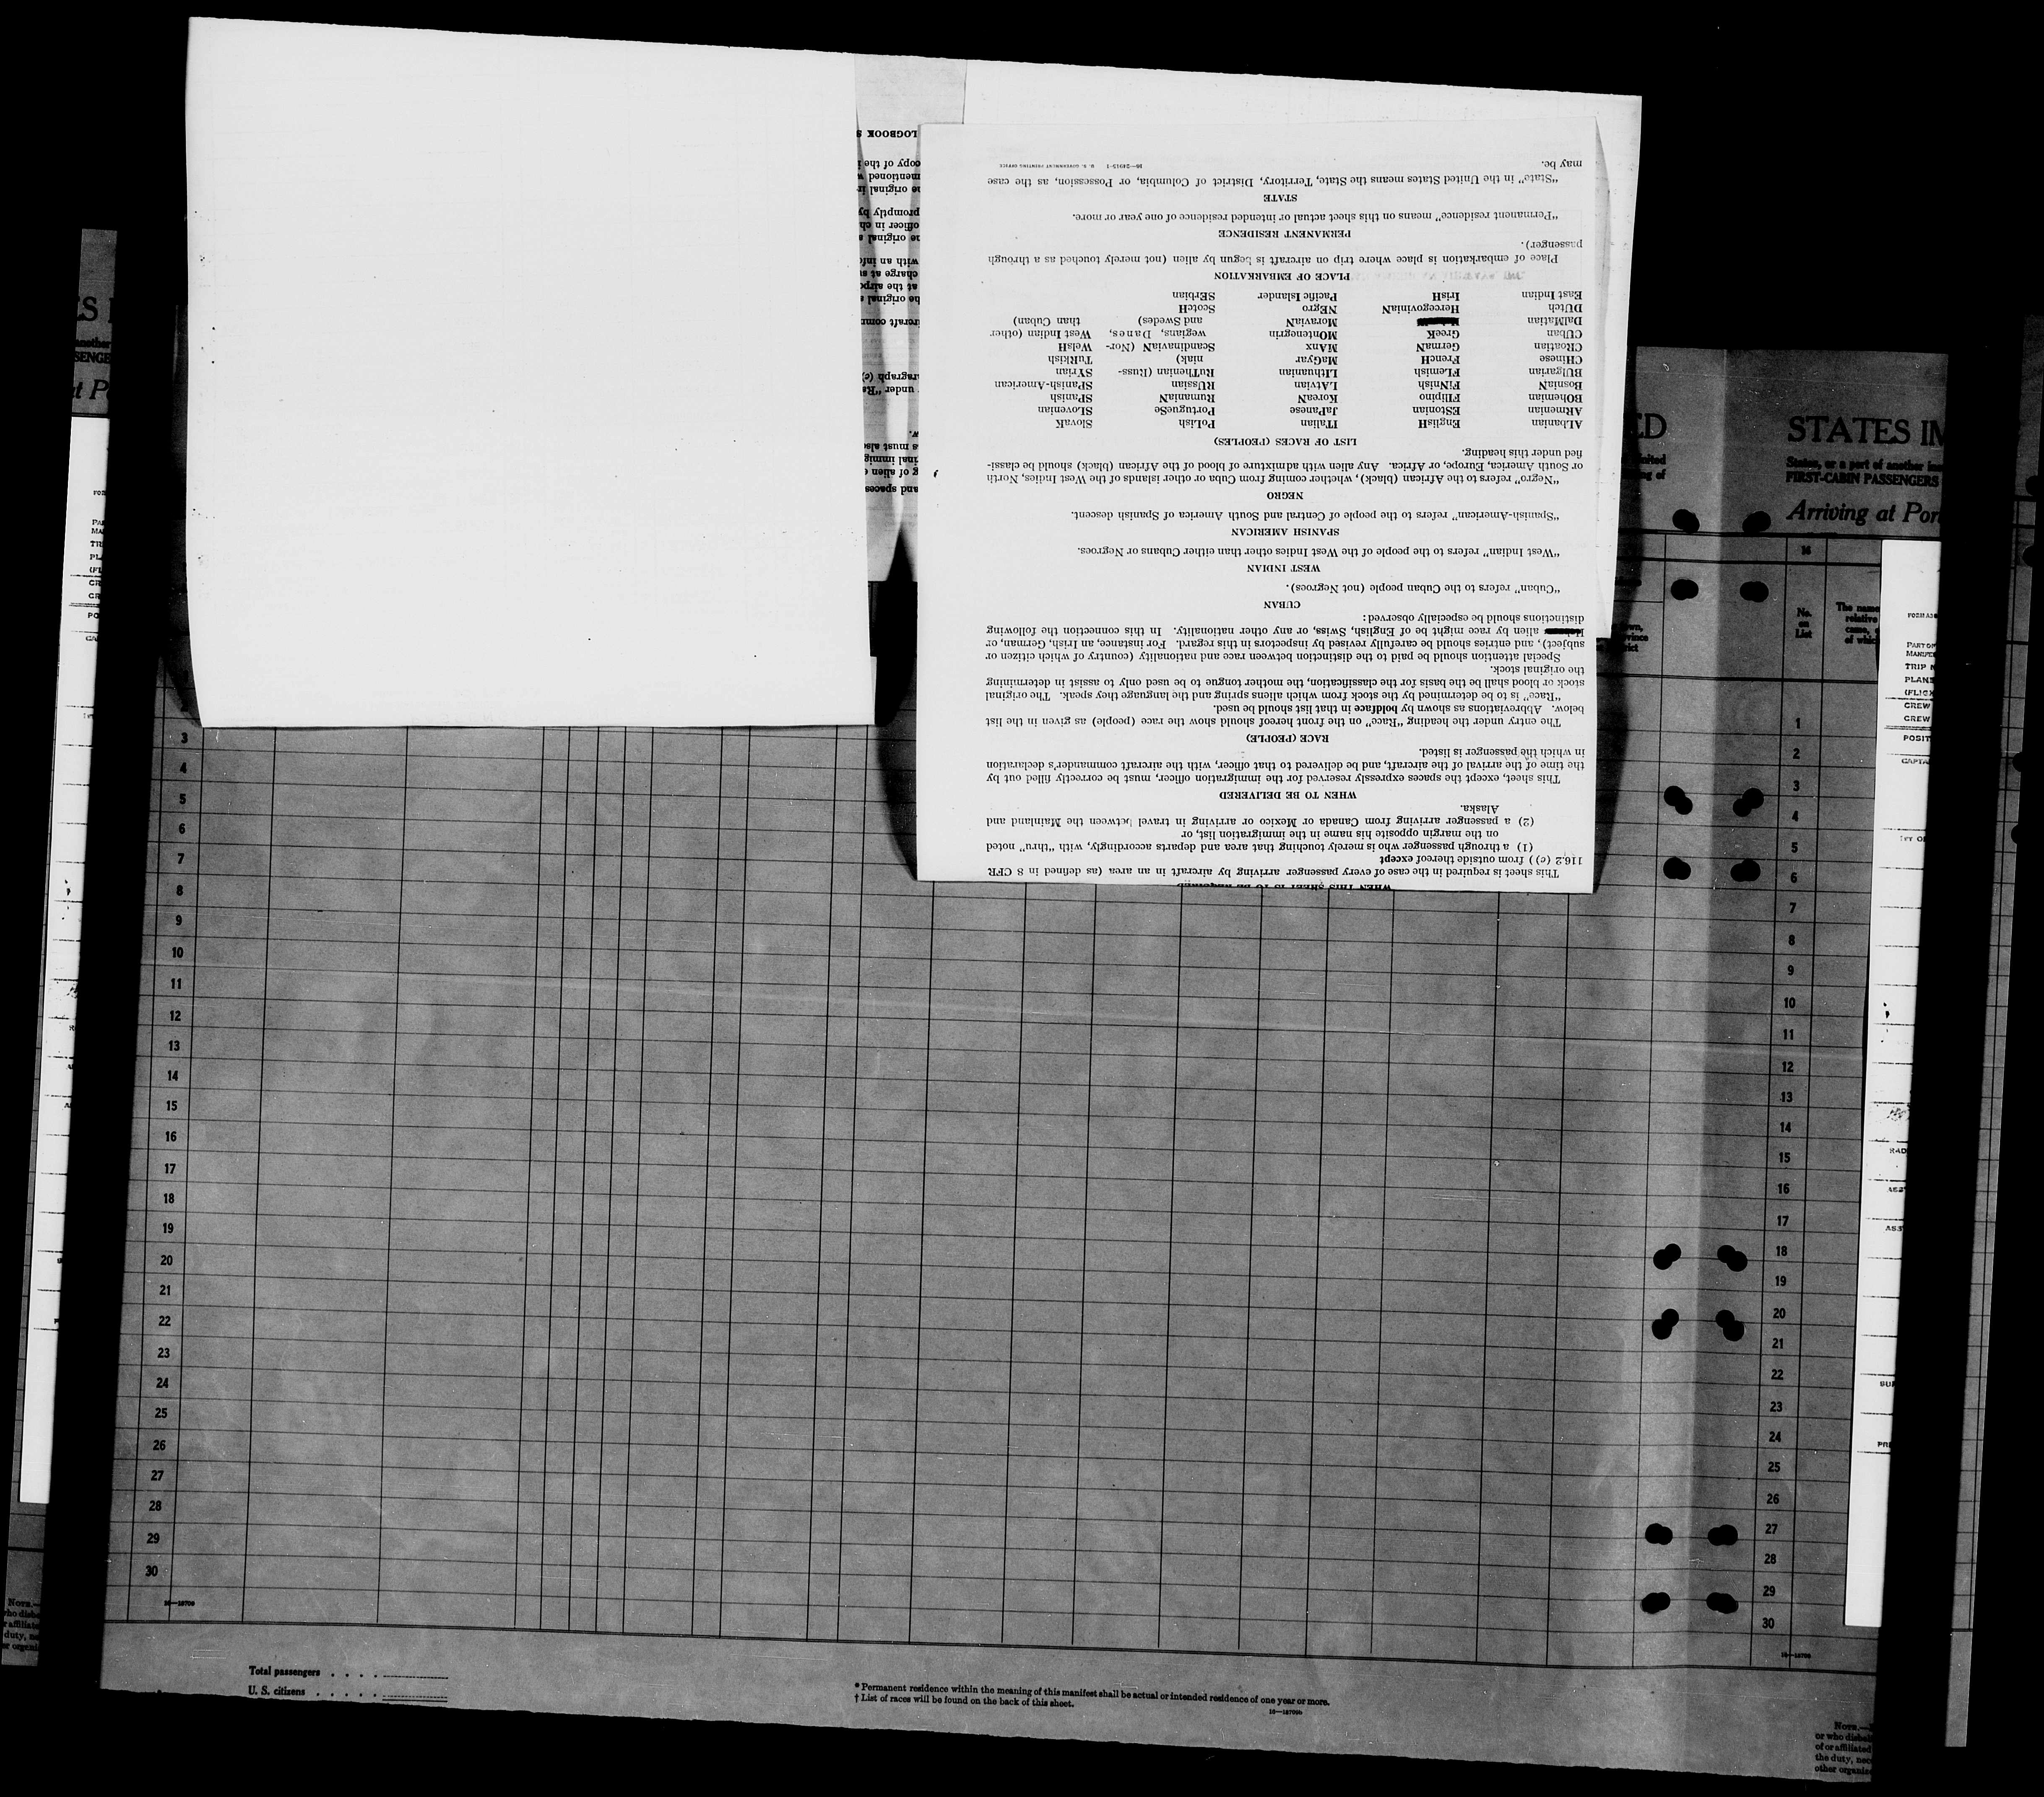 WHEN THIS SHEET IS TO BE REQUIRED
This sheet is required in the case of every passenger arriving by aircraft in an area (as defined in 8 CFR
116.2 (c)) from outside thereof except
(1) a through passenger who is merely touching that area and departs accordingly, with "thru" noted
on the margin opposite his name in the immigration list, or
(2) a passenger arriving from Canada or Mexico or arriving in travel between the Mainland and
Alaska.
WHEN TO BE DELIVERED
This sheet, except the spaces expressly reserved for the immigration officer, must be correctly filled out by
the time of the arrival of the aircraft, and be delivered to that officer, with the aircraft commander's declaration
in which the passenger is listed.
RACE (PEOPLE)
The entry under the heading "Race" on the front hereof should show the race (people) as given in the list
below. Abbreviations as shown by boldface in that list should be used.
"Race" is to be determined by the stock from which aliens spring and the language they speak. The original
stock or blood shall be the basis for the classification, the mother tongue to be used only to assist in determining
the original stock.
Special attention should be paid to the distinction between race and nationality (country of which citizen or
subject), and entries should be carefully revised by inspectors in this regard. For instance, an Irish, German, or
alien by race might be of English, Swiss, or any other nationality. In this connection the following
distinctions should be especially observed:
CUBAN
"Cuban" refers to the Cuban people (not Negroes).
WEST INDIAN
"West Indian" refers to the people of the West Indies other than either Cubans or Negroes.
SPANISH AMERICAN
"Spanish-American" refers to the people of Central and South America of Spanish descent.
NEGRO
"Negro" refers to the African (black), whether coming from Cuba or other islands of the West Indies, North
or South America, Europe, or Africa. Any alien with admixture of blood of the African (black) should be classi-
fied under this heading.
LIST OF RACES (PEOPLES)
ALbanian EngliSH ITalian PoLish SlovaK
ARmenian EStonian JaPanese PortugueSe SLOvenian
BOhemian FIlipino KoreaN RumaniaN SPanish
BosniaN FiNnish LATvian RUssian SPanish-American
BUlgarian FLemish LIthuanian RuThenian (Russ- SYrian
CHinese FrencH MaGyar niak) TuRKish
CRoatian GermaN MAnx ScandinaviaN (Nor- WelsH
CUban GreeK MOntenegrin wegians, Danes, West Indian (other
DalMatian MoraviaN and Swedes) than Cuban)
DUtch HercegoviniaN NEgro ScotcH
East Indian IrisH Pacific Islander SErbian
PLACE OF EMBARKATION
Place of embarkation is place where trip on aircraft is begun by alien (not merely touched as a through
passenger).
PERMANENT RESIDENCE
"Permanent residence" means on this sheet actual or intended residence of one year or more.
STATE
"State" in the United States means the State, Territory, District of Columbia, or Possession, as the case
may be.
16—24915-1 U. S. GOVERNMENT PRINTING OFFICE
LOGBOOK
copy of the
mentioned
original
promptly by
officer in
original
with an
charge at
at the
original
aircraft
paragraph (c)
under
must also
immig
of alien
and spaces
STATES
States, or a part of another
FIRST-CABIN PASSENGERS
Arriving at
16
No.
on
List
The name
relative
of
3
4
5
6
7
8
9
10
11
12
13
14
15
16
17
18
19
20
21
22
23
24
25
26
27
28
29
30
16—18709
1
2
3
4
5
6
7
8
9
10
11
12
13
14
15
16
17
18
19
20
21
22
23
24
25
26
27
28
29
30
Total passengers
U. S. citizens
* Permanent residence within the meaning of this manifest shall be actual or intended residence of one year or more.
† List of races will be found on the back of this sheet.
16—18709b
NOTE.—
or who
of or affiliated
the duty,
other